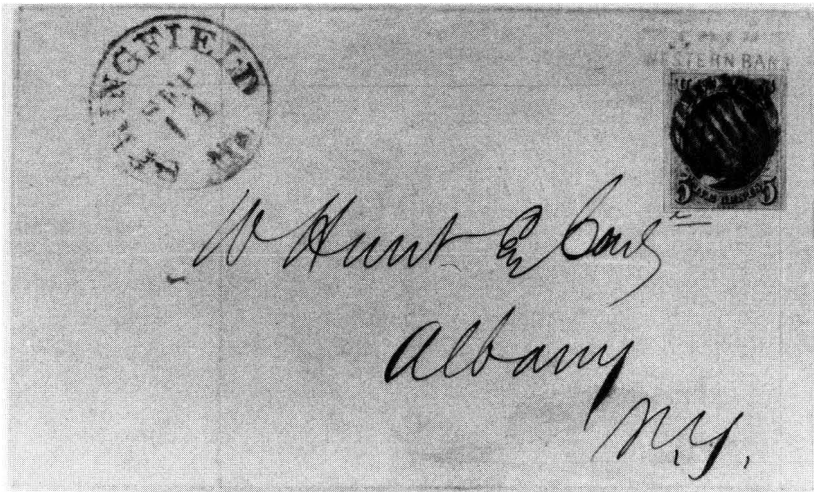 SPRINGFIELD
SEP
14
MS
WESTERN BANK
5 5
W Hunt Esq
Albany
N.Y.